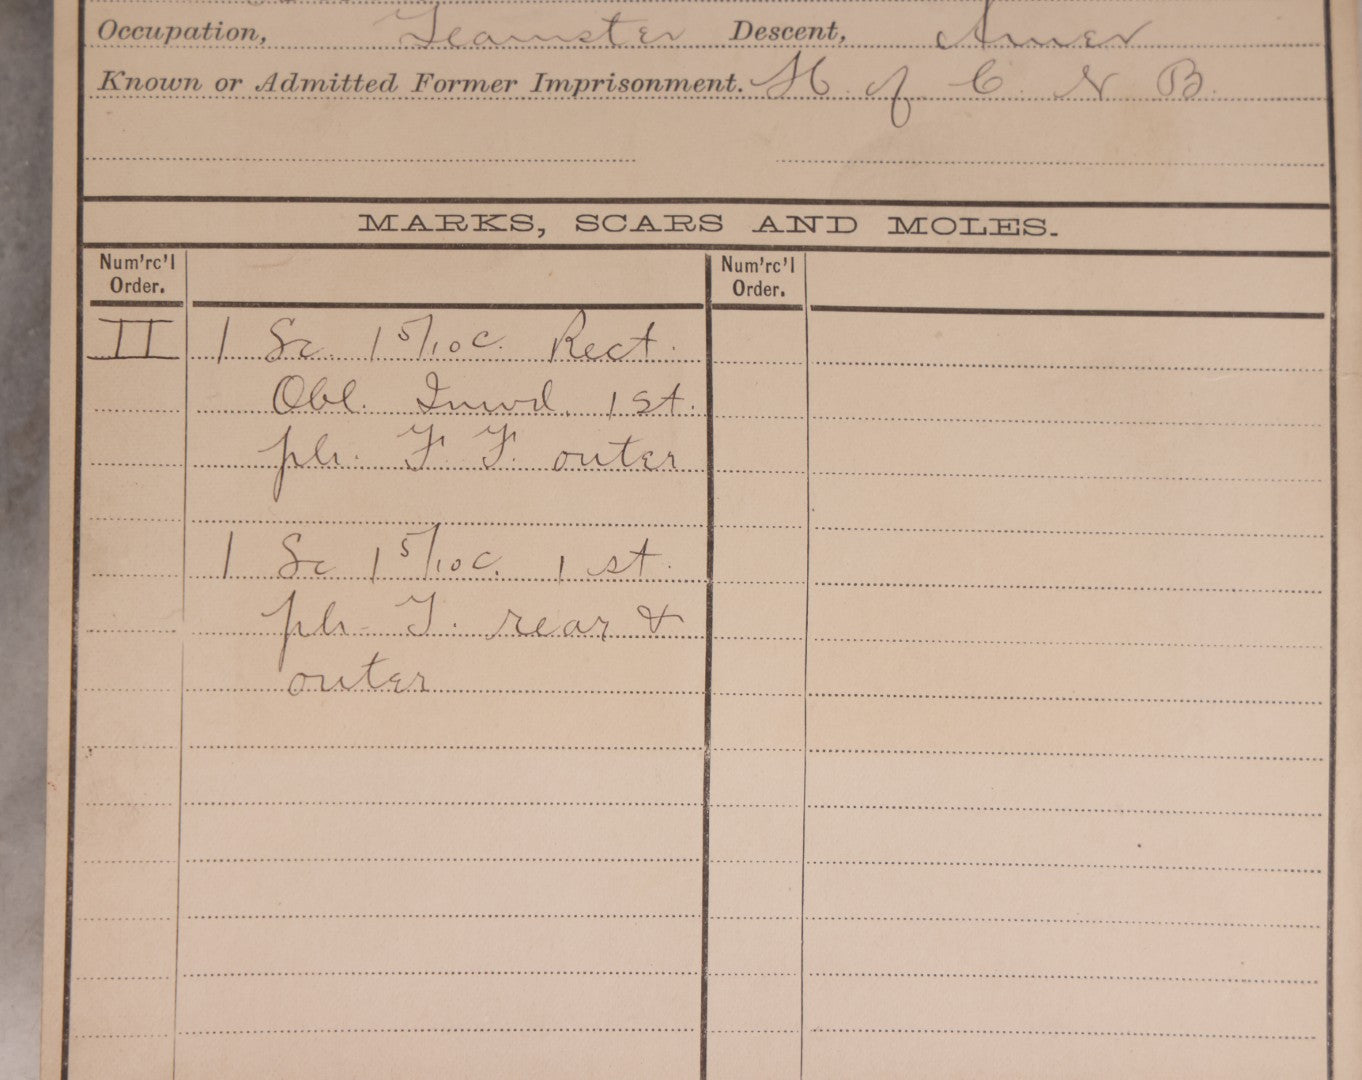 Occupation, Teamster Descent, Amer
Known or Admitted Former Imprisonment. H. of C. N B.
MARKS, SCARS AND MOLES.
Num'rc'l Order. Num'rc'l Order.
II 1 Sc. 1 5/10 c. Rect.
Obl. Inwd. 1 st.
ph. F. F. outer
1 Sc 1 5/10 c. 1 st.
ph- F. rear &
outer